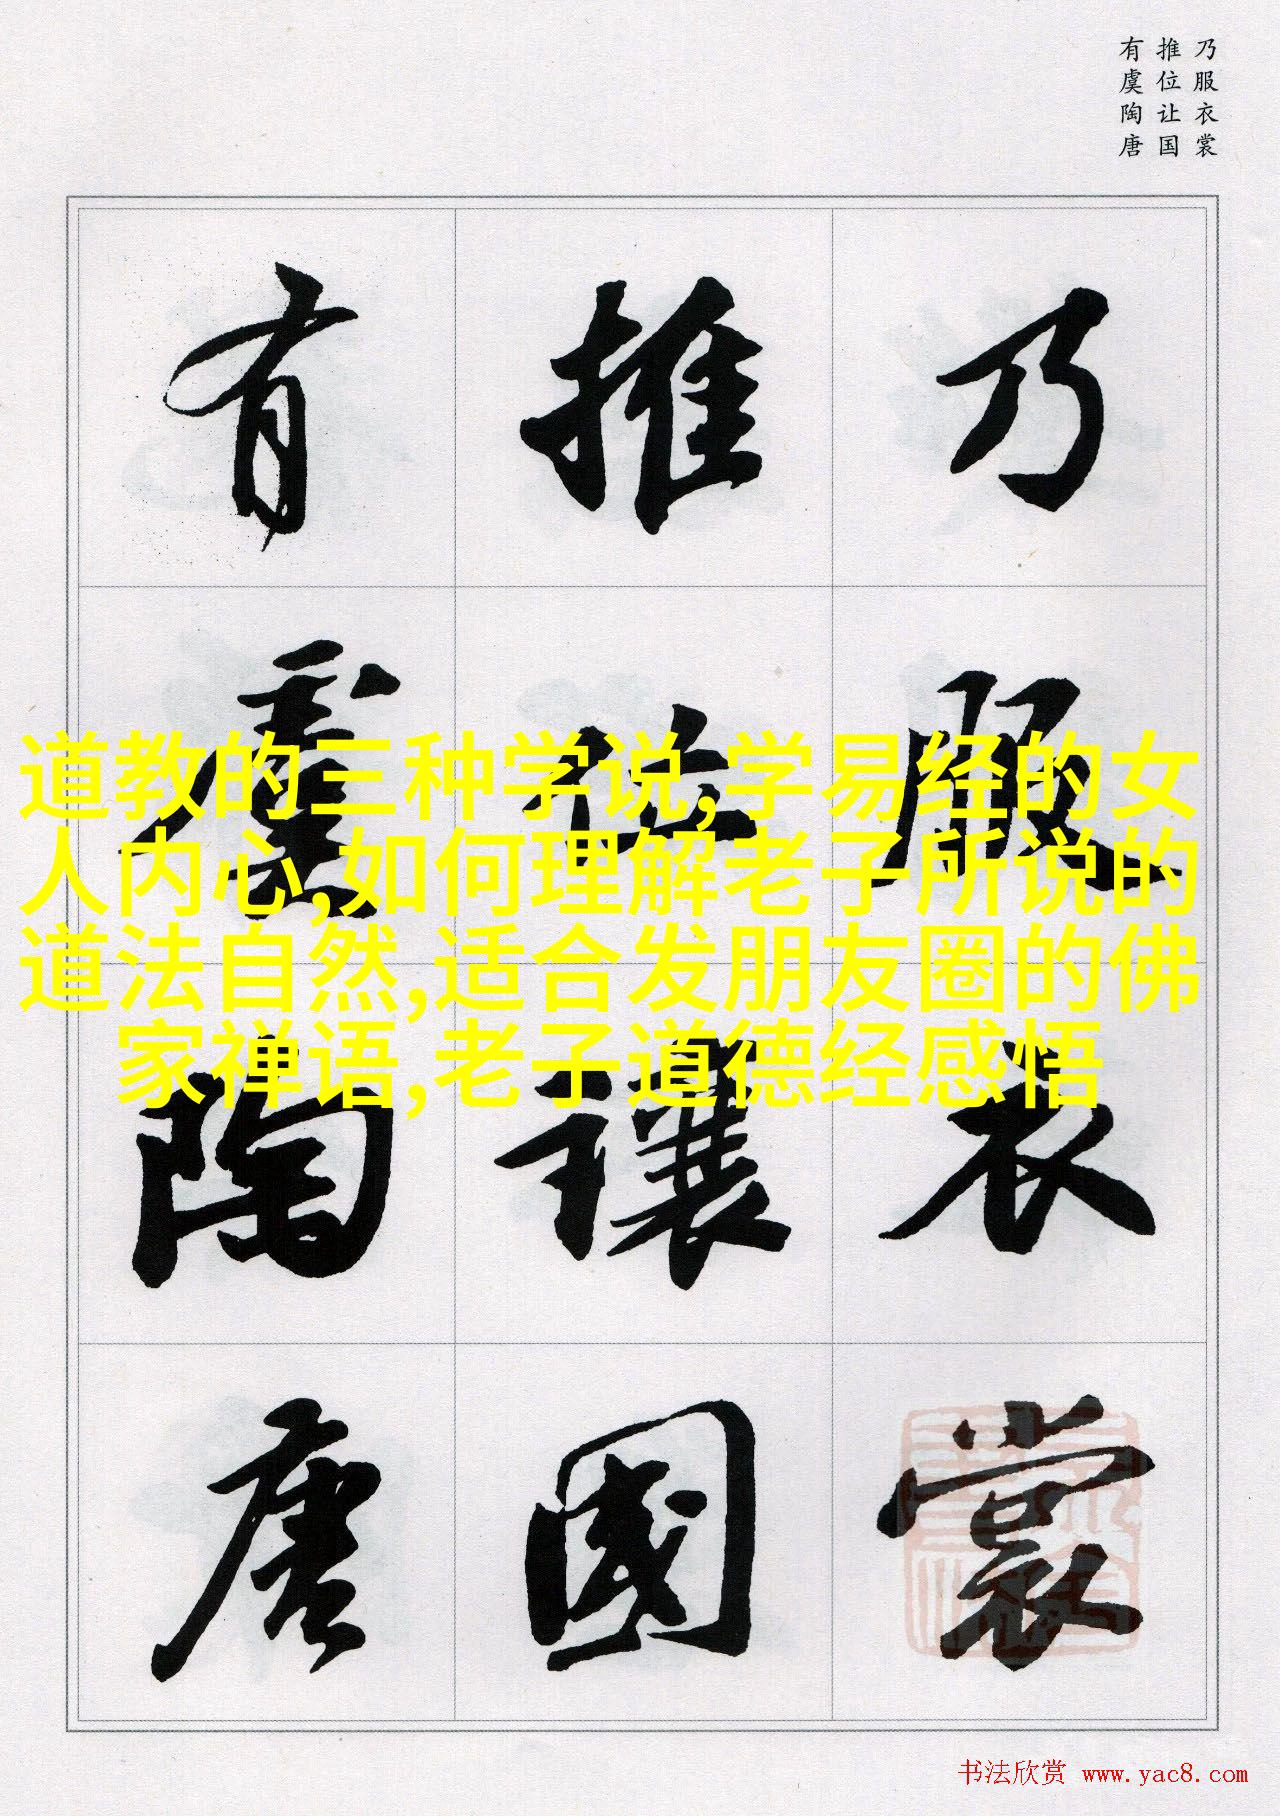 乃服衣裳
推位让国
有虞陶唐
乃服衣裳
推位讓國
有虞陶唐
道教的三种学说,学易经的女
人内心,如何理解老子所说的
道法自然,适合发朋友圈的佛
家禅语,老子道德经感悟
书法欣赏 www.yac8.com